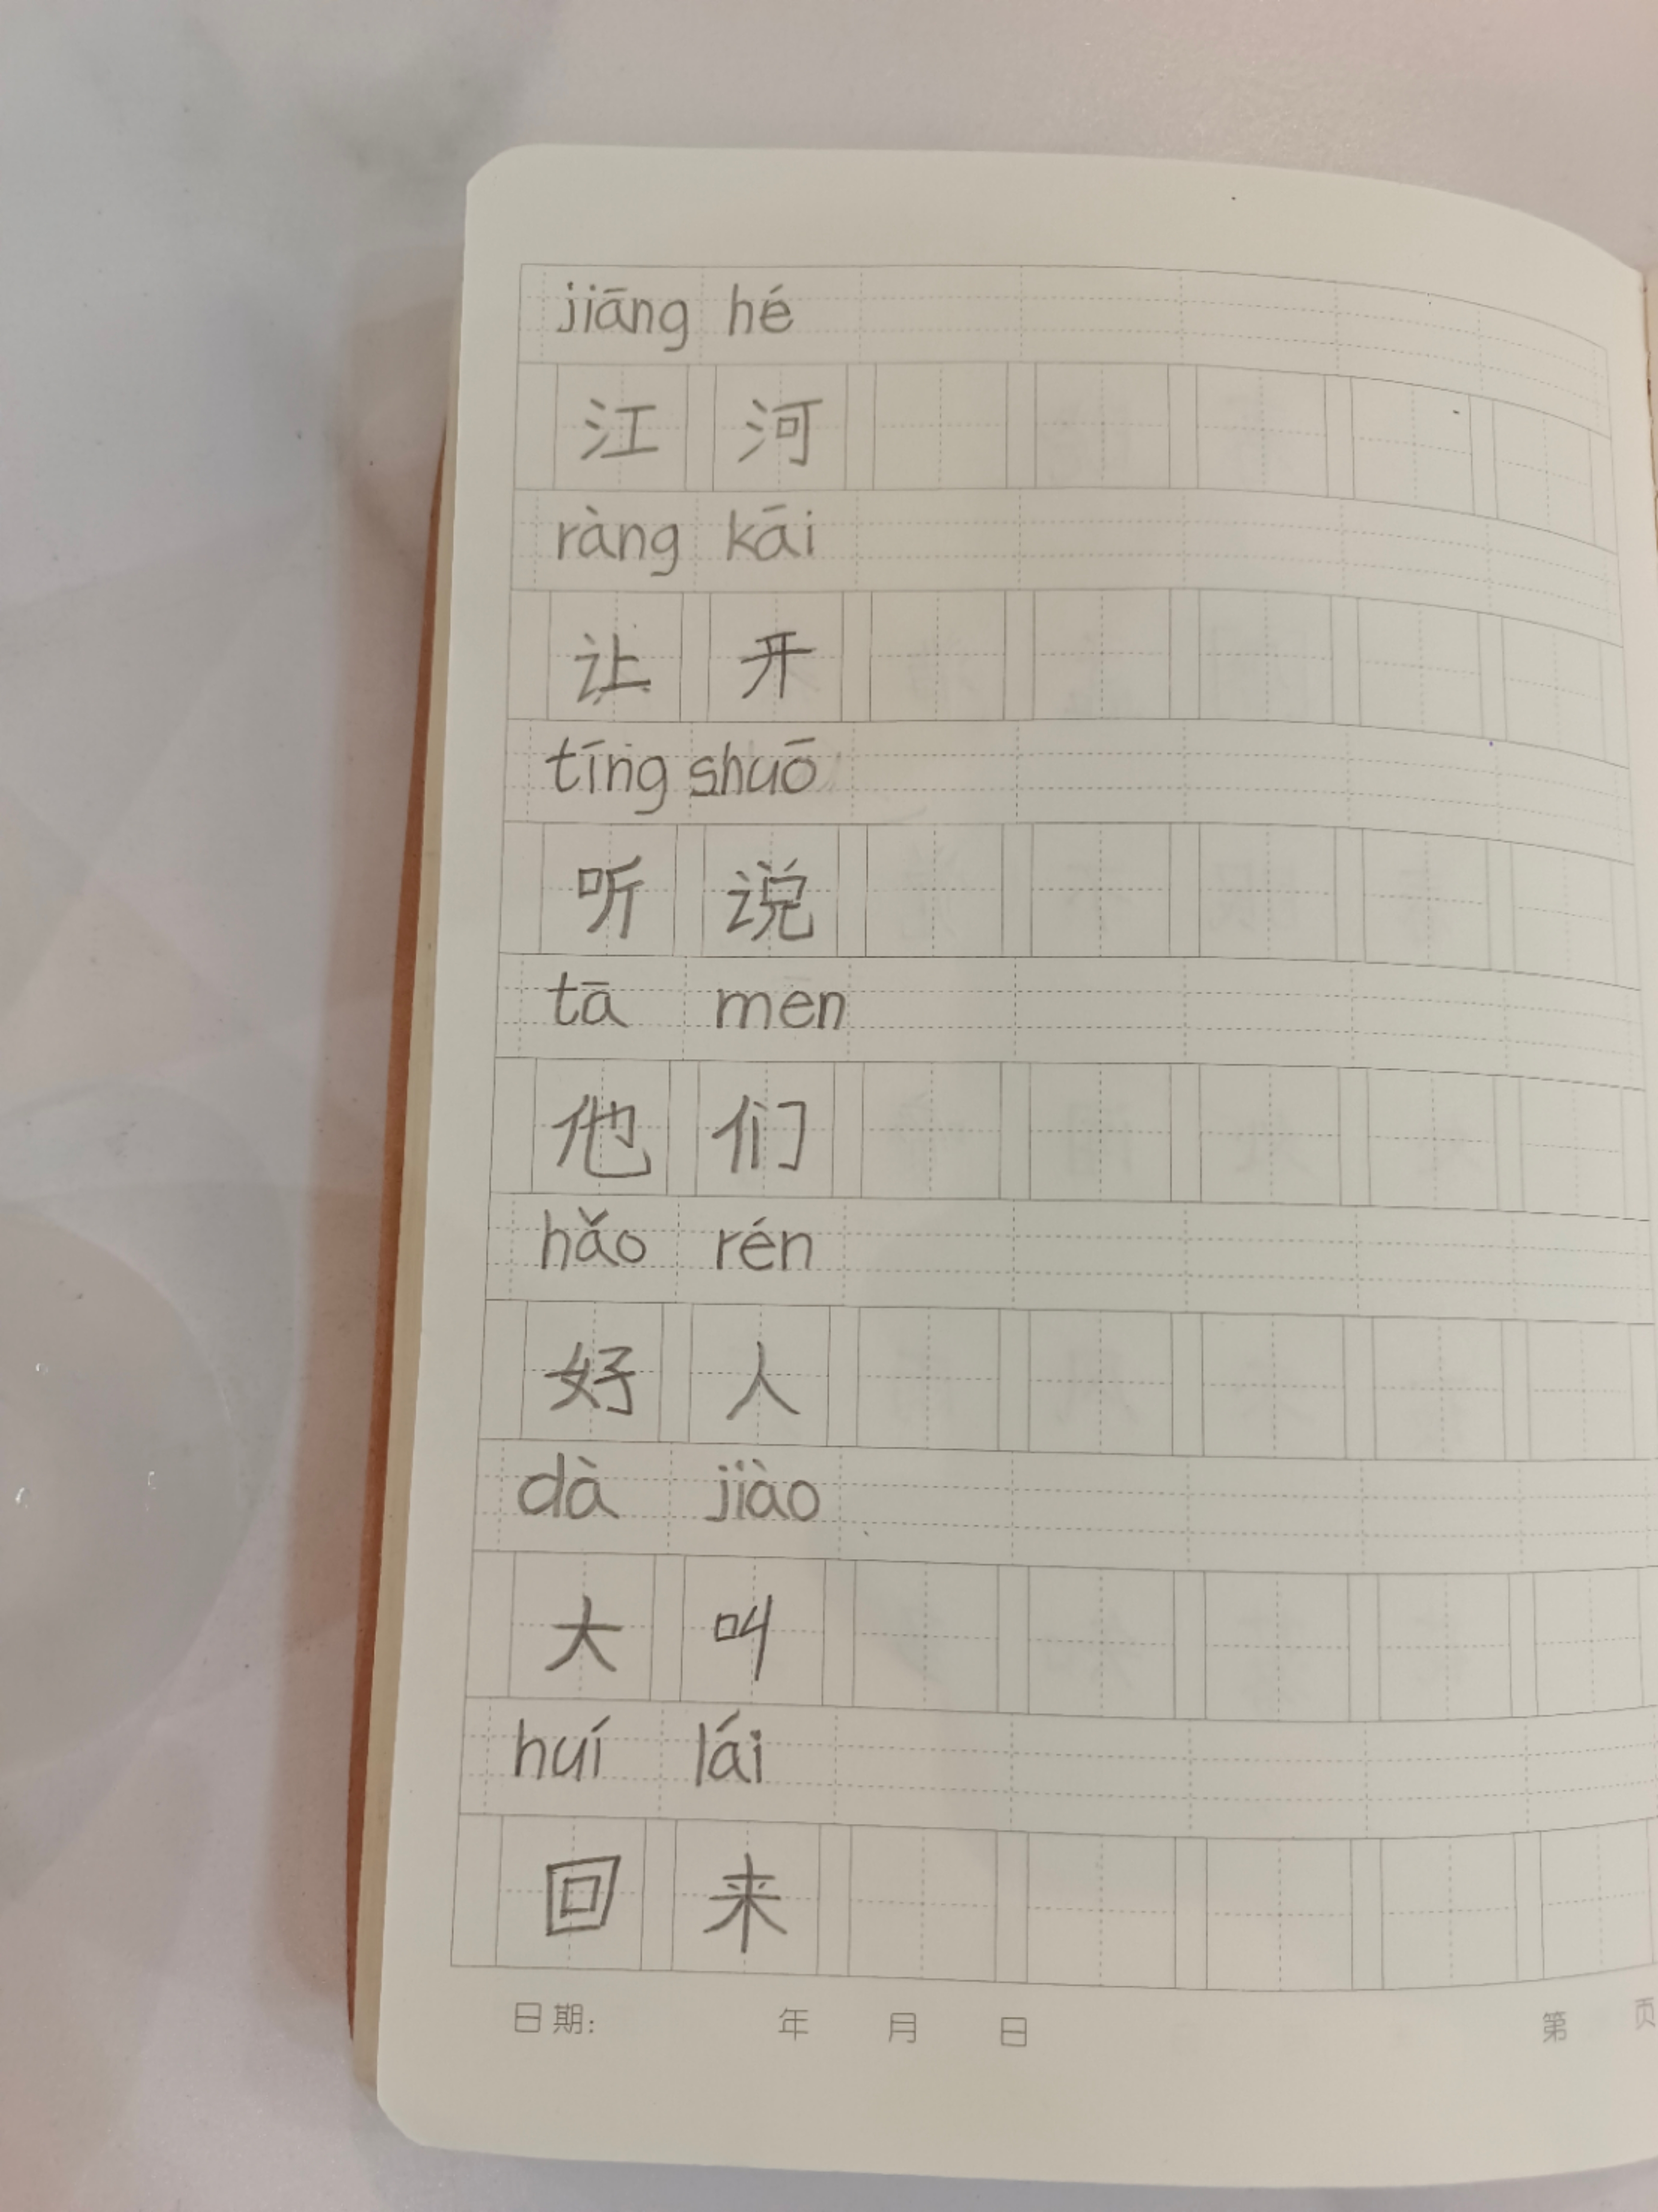 jiāng hé
江 河
ràng kāi
让 开
tīng shuō
听 说
tā men
他们
hǎo rén
好 人
dà jiào
大 叫
huí lái
回 来
日期: 年 月 日 第 页